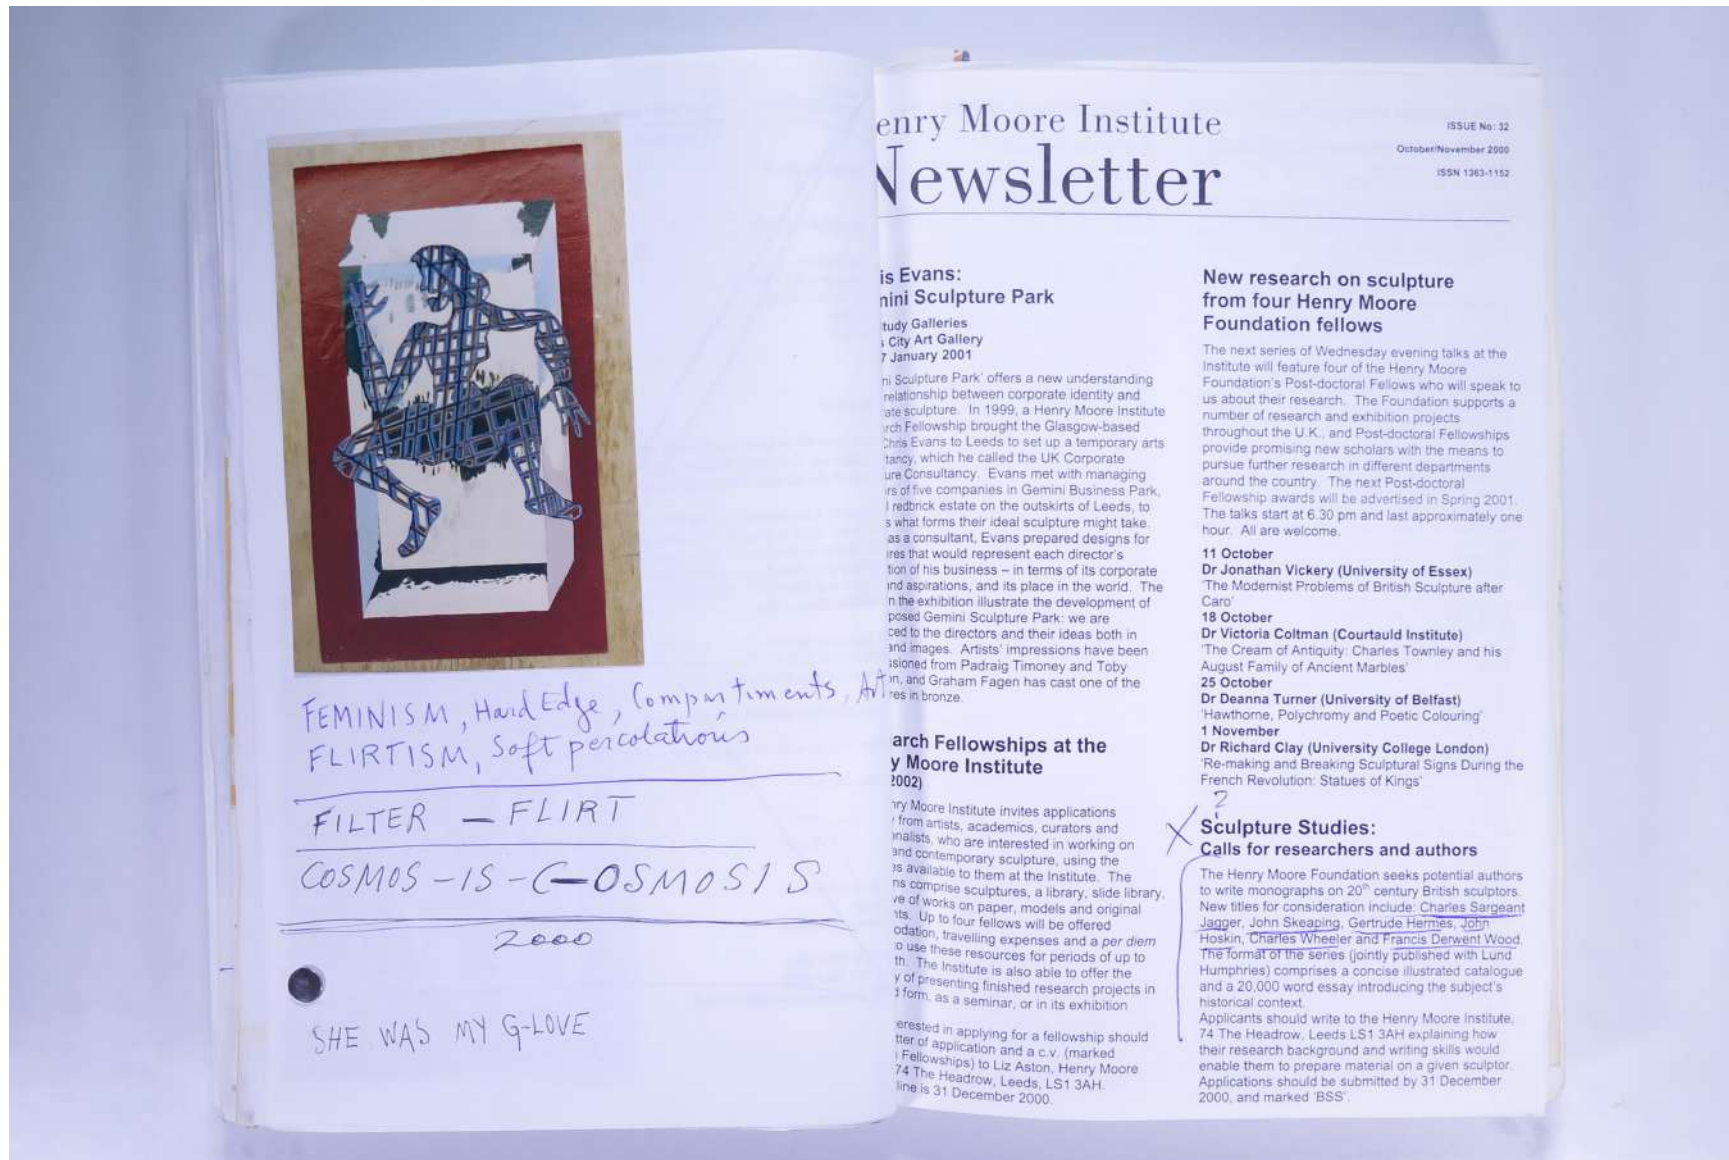 FEMINISM, Hard Edge, Compartiments, Art
FLIRTISM, Soft percolations
FILTER – FLIRT
COSMOS – IS – C–OSMOSIS
2000
SHE WAS MY G-LOVE
enry Moore Institute
Newsletter
ISSUE No: 32
October/November 2000
ISSN 1363-1152
is Evans:
nini Sculpture Park
tudy Galleries
s City Art Gallery
7 January 2001
ni Sculpture Park' offers a new understanding
relationship between corporate identity and
ate sculpture. In 1999, a Henry Moore Institute
rch Fellowship brought the Glasgow-based
Chris Evans to Leeds to set up a temporary arts
tancy, which he called the UK Corporate
ure Consultancy. Evans met with managing
rs of five companies in Gemini Business Park,
l redbrick estate on the outskirts of Leeds, to
s what forms their ideal sculpture might take.
as a consultant, Evans prepared designs for
res that would represent each director's
tion of his business – in terms of its corporate
and aspirations, and its place in the world. The
n the exhibition illustrate the development of
posed Gemini Sculpture Park: we are
ced to the directors and their ideas both in
and images. Artists' impressions have been
ssioned from Padraig Timoney and Toby
n, and Graham Fagen has cast one of the
res in bronze.
arch Fellowships at the
y Moore Institute
2002)
nry Moore Institute invites applications
from artists, academics, curators and
nalists, who are interested in working on
and contemporary sculpture, using the
es available to them at the Institute. The
ns comprise sculptures, a library, slide library,
ve of works on paper, models and original
nts. Up to four fellows will be offered
odation, travelling expenses and a per diem
o use these resources for periods of up to
th. The Institute is also able to offer the
y of presenting finished research projects in
d form, as a seminar, or in its exhibition
erested in applying for a fellowship should
tter of application and a c.v. (marked
Fellowships) to Liz Aston, Henry Moore
74 The Headrow, Leeds, LS1 3AH.
line is 31 December 2000.
New research on sculpture
from four Henry Moore
Foundation fellows
The next series of Wednesday evening talks at the
Institute will feature four of the Henry Moore
Foundation's Post-doctoral Fellows who will speak to
us about their research. The Foundation supports a
number of research and exhibition projects
throughout the U.K., and Post-doctoral Fellowships
provide promising new scholars with the means to
pursue further research in different departments
around the country. The next Post-doctoral
Fellowship awards will be advertised in Spring 2001.
The talks start at 6.30 pm and last approximately one
hour. All are welcome.
11 October
Dr Jonathan Vickery (University of Essex)
'The Modernist Problems of British Sculpture after
Caro'
18 October
Dr Victoria Coltman (Courtauld Institute)
'The Cream of Antiquity: Charles Townley and his
August Family of Ancient Marbles'
25 October
Dr Deanna Turner (University of Belfast)
'Hawthorne, Polychromy and Poetic Colouring'
1 November
Dr Richard Clay (University College London)
'Re-making and Breaking Sculptural Signs During the
French Revolution: Statues of Kings'
X ?
Sculpture Studies:
Calls for researchers and authors
The Henry Moore Foundation seeks potential authors
to write monographs on 20th century British sculptors.
New titles for consideration include: Charles Sargeant
Jagger, John Skeaping, Gertrude Hermes, John
Hoskin, Charles Wheeler and Francis Derwent Wood.
The format of the series (jointly published with Lund
Humphries) comprises a concise illustrated catalogue
and a 20,000 word essay introducing the subject's
historical context.
Applicants should write to the Henry Moore Institute,
74 The Headrow, Leeds LS1 3AH explaining how
their research background and writing skills would
enable them to prepare material on a given sculptor.
Applications should be submitted by 31 December
2000, and marked 'BSS'.